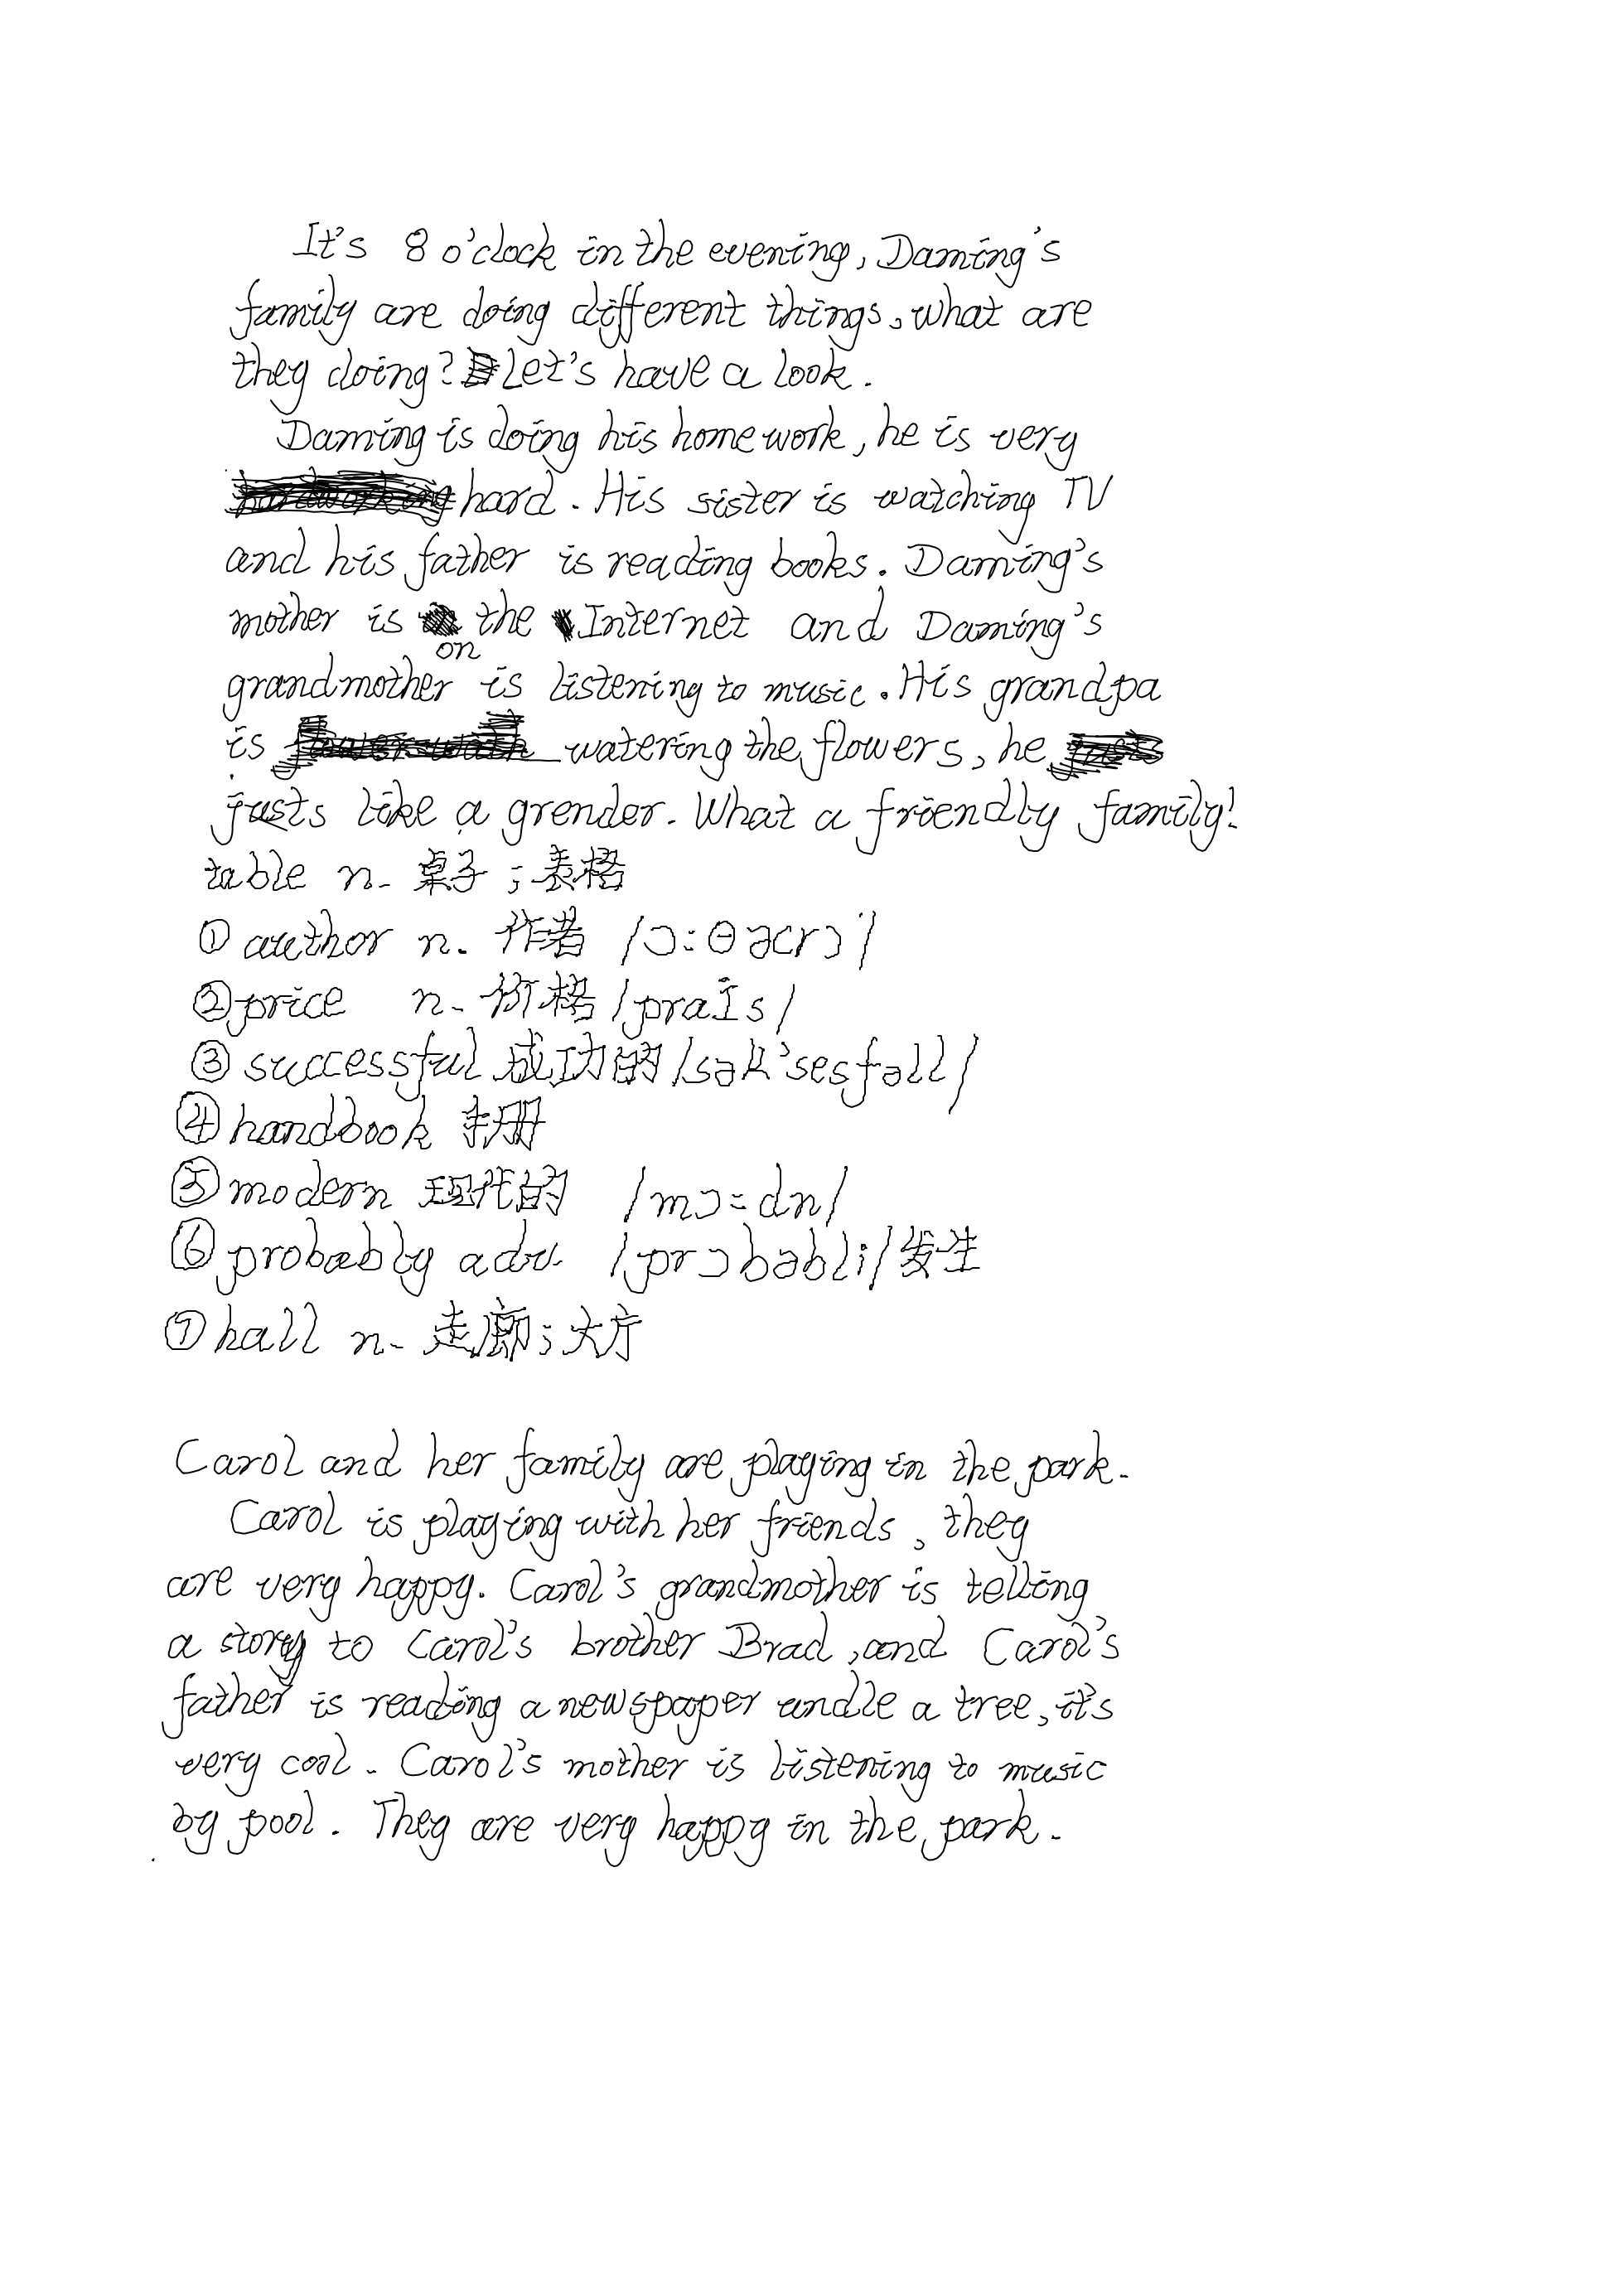 It's 8 o'clock in the evening, Daming's
family are doing different things, what are
they doing? Let's have a look.
Daming is doing his homework, he is very
hard. His sister is watching TV
and his father is reading books. Daming's
mother is on the Internet and Daming's
grandmother is listening to music. His grandpa
is watering the flowers, he
justs like a grender. What a friendly family!
table n. 桌子；表格
①author n. 作者 /ɔ:θə(r)/
②price n. 价格 /praIs/
③successful 成功的 /sək'sesfəll/
④handbook 手册
⑤modern 现代的 /mɔ:dn/
⑥probably adv. /prɔbəbli/ 发生
⑦hall n. 走廊；大厅
Carol and her family are playing in the park.
Carol is playing with her friends, they
are very happy. Carol's grandmother is telling
a story to Carol's brother Brad, and Carol's
father is reading a newspaper undle a tree, it's
very cool. Carol's mother is listening to music
by pool. They are very happy in the park.